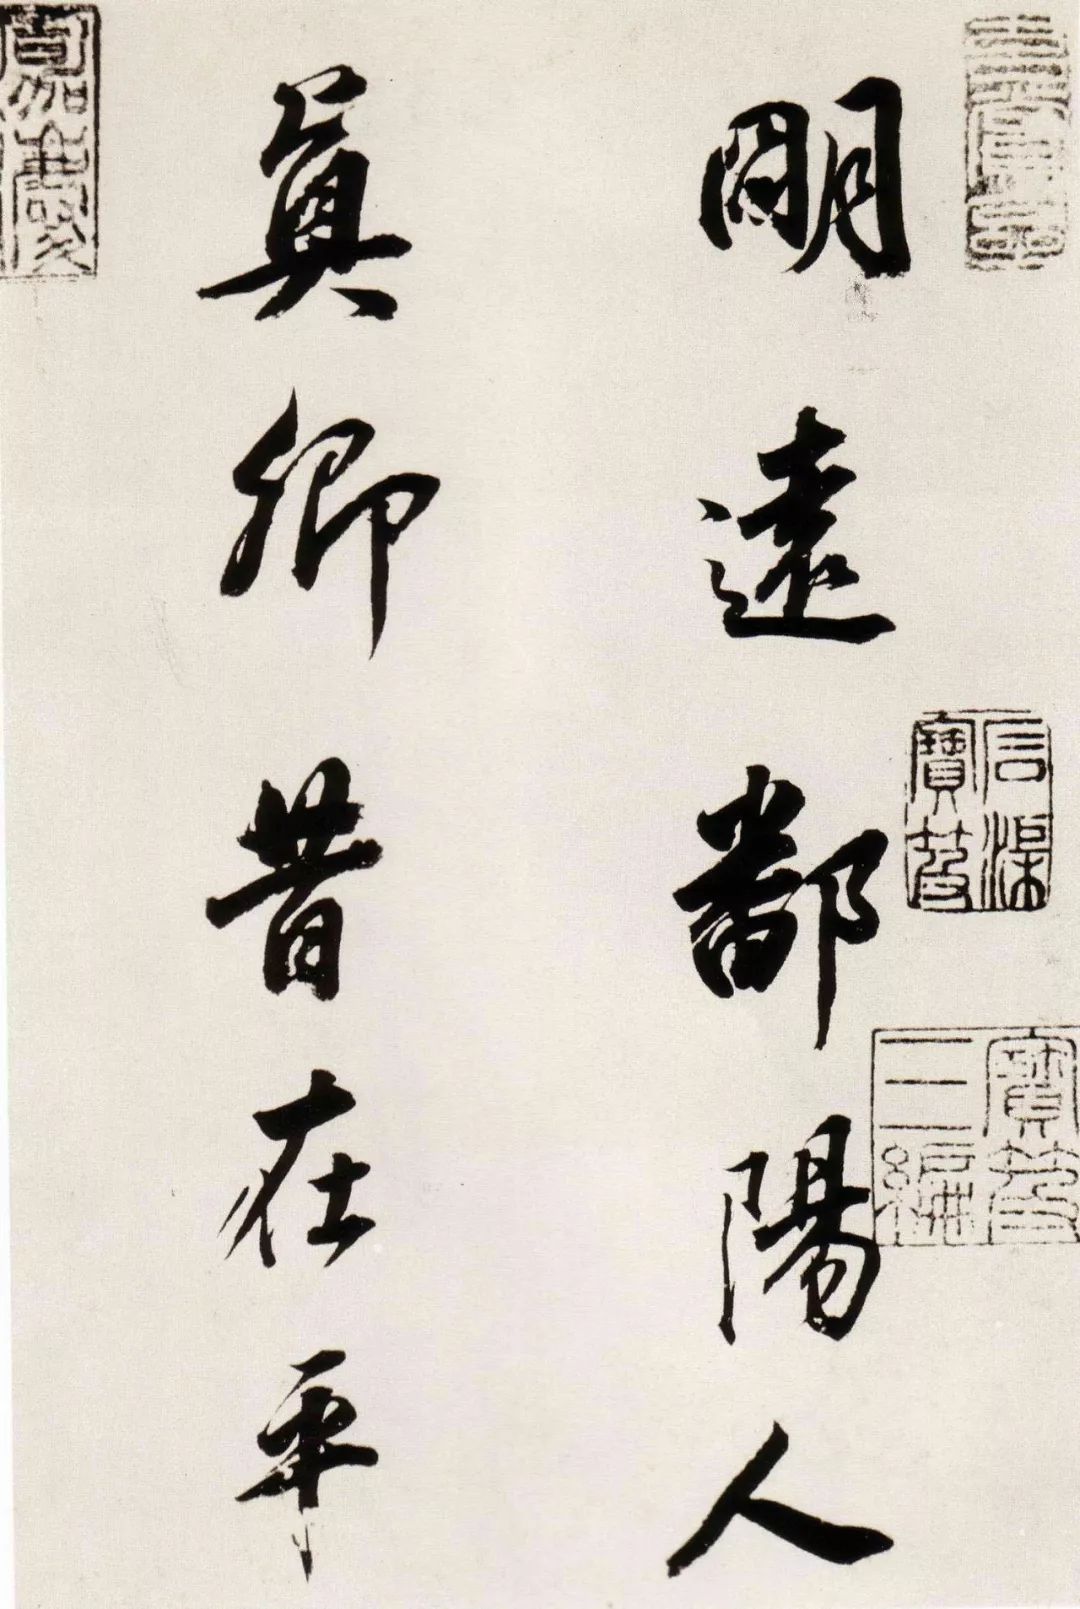 明遠鄱陽人
真卿昔在平
石渠寶笈
寶笈三編